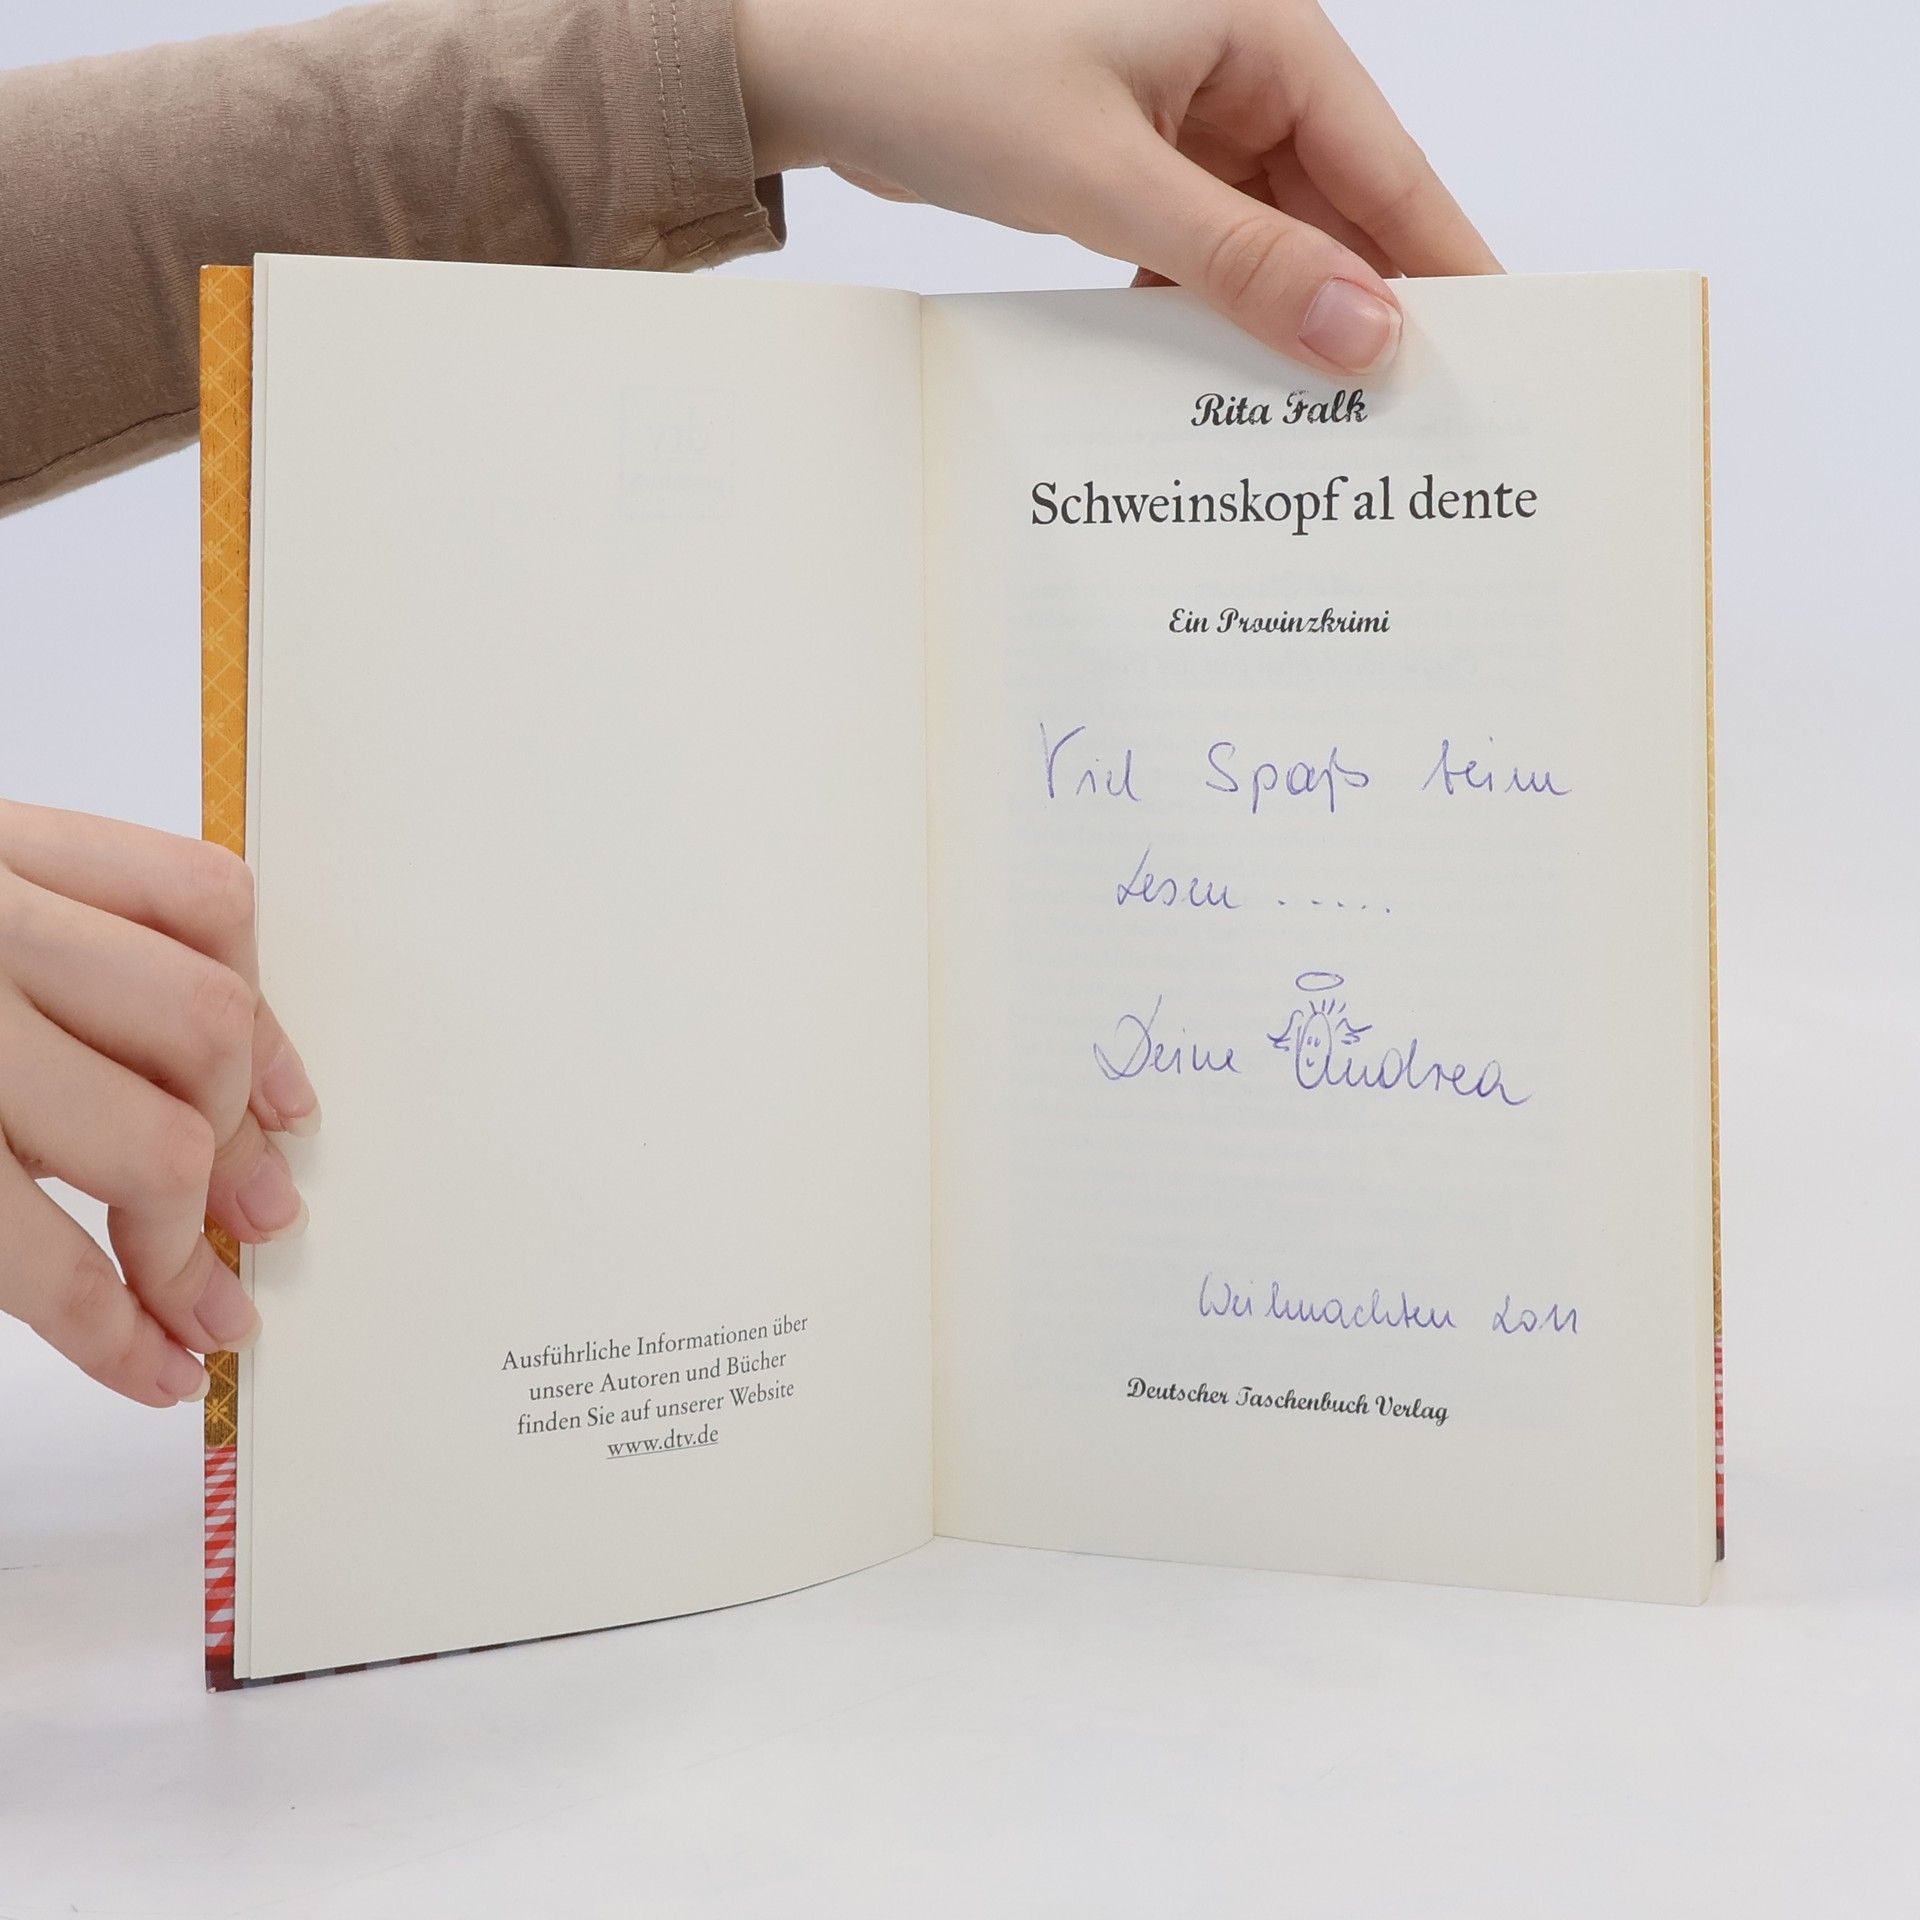 Ausführliche Informationen über
unsere Autoren und Bücher
finden Sie auf unserer Website
www.dtv.de
Rita Falk
Schweinskopf al dente
Ein Provinzkrimi
Viel Spaß beim
Lesen .....
Deine Andrea
Weihnachten 2011
Deutscher Taschenbuch Verlag